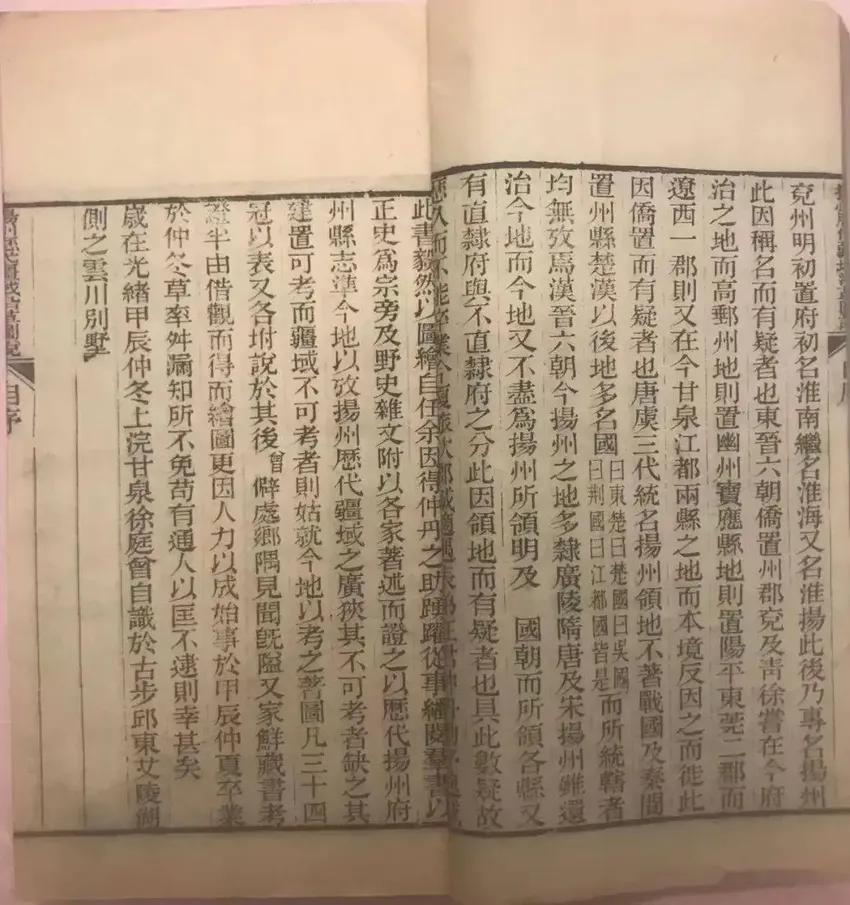 兗州明初置府初名淮南繼名淮海又名淮揚此後乃專名揚州
此因稱名而有疑者也東晉六朝僑置州郡兗及靑徐嘗在今府
治之地而高郵州地則置幽州寶應縣地則置陽平東莞二郡而
遼西一郡則又在今甘泉江都兩縣之地而本境反因之而徙此
因僑置而有疑者也唐虞三代統名揚州領地不著戰國及秦間
置州縣楚漢以後地多名國曰東楚曰楚國曰吳國曰荆國曰江都國皆是而所統轄者
均無攷焉漢晉六朝今揚州之地多隸廣陵隋唐及宋揚州雖還
治今地而今地又不盡爲揚州所領明及 國朝而所領各縣又
有直隸府與不直隸府之分此因領地而有疑者也具此數疑故
歷久而不能卒業今夏
此書毅然以圖繪自任余因得仲丹之助踴躍從事繙閱羣書以
正史爲宗旁及野史雜文附以各家著述而證之以歷代揚州府
州縣志準今地以攷揚州歷代疆域之廣狹其不可考者缺之其
建置可考而疆域不可考者則姑就今地以考之著圖凡三十四
冠以表又各坿說於其後曾僻處鄉隅見聞旣隘又家鮮藏書考
證半由借觀而得而繪圖更因人力以成始事於甲辰仲夏卒業
於仲冬草率舛漏知所不免苟有通人以匡不逮則幸甚矣
歲在光緒甲辰仲冬上浣甘泉徐庭曾自識於古步邱東艾陵湖
側之雲川別墅
自序